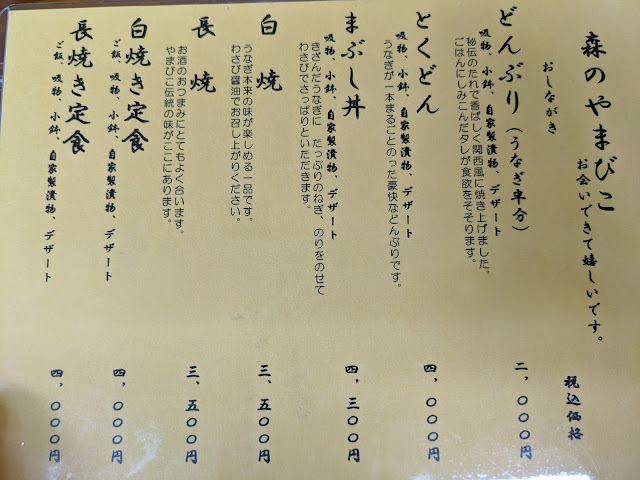 森のやまびこ
お会いできて嬉しいです。
おしながき
税込価格
どんぶり(うなぎ半分)
吸物、小鉢、自家製漬物、デザート
秘伝のたれで香ばしく関西風に焼き上げました。
ごはんにしみこんだタレが食欲をそそります。
二,〇〇〇円
とくどん
吸物、小鉢、自家製漬物、デザート
うなぎが一本まるごとのった豪快などんぶりです。
四,〇〇〇円
まぶし丼
吸物、小鉢、自家製漬物、デザート
きざんだうなぎに たっぷりのねぎ、のりをのせて
わさびでさっぱりといただきます。
四,三〇〇円
白焼
うなぎ本来の味が楽しめる一品です。
わさび醤油でお召し上がりください。
三,五〇〇円
長焼
お酒のおつまみにとてもよく合います。
やまびこ伝統の味がここにあります。
三,五〇〇円
白焼き定食
ご飯、吸物、小鉢、自家製漬物、デザート
四,〇〇〇円
長焼き定食
ご飯、吸物、小鉢、自家製漬物、デザート
四,〇〇〇円